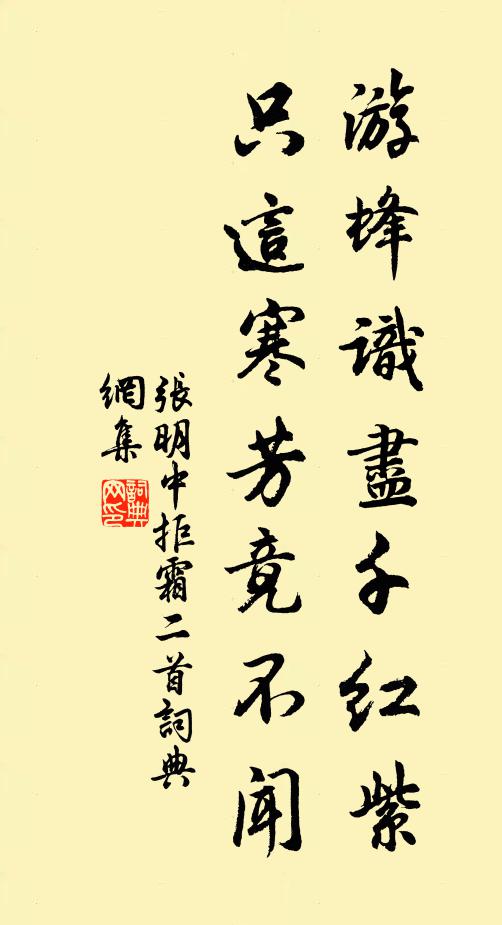 游蜂識盡千紅紫
只這寒芳竟不闻
張明中拒霜二首詞典
網集
詞典網印